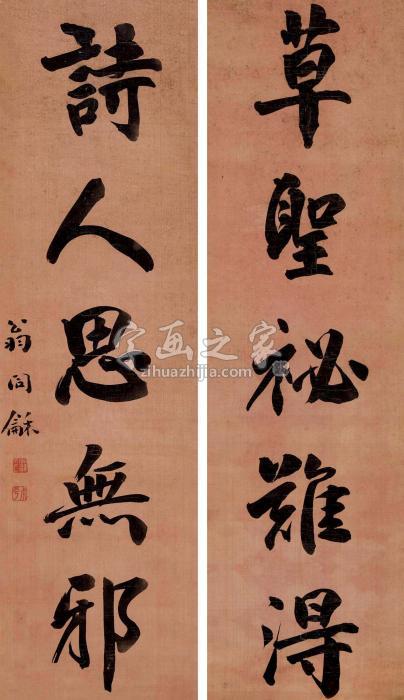 草聖祕難得
詩人思無邪
翁同龢
字画之家
zihuazhijia.com